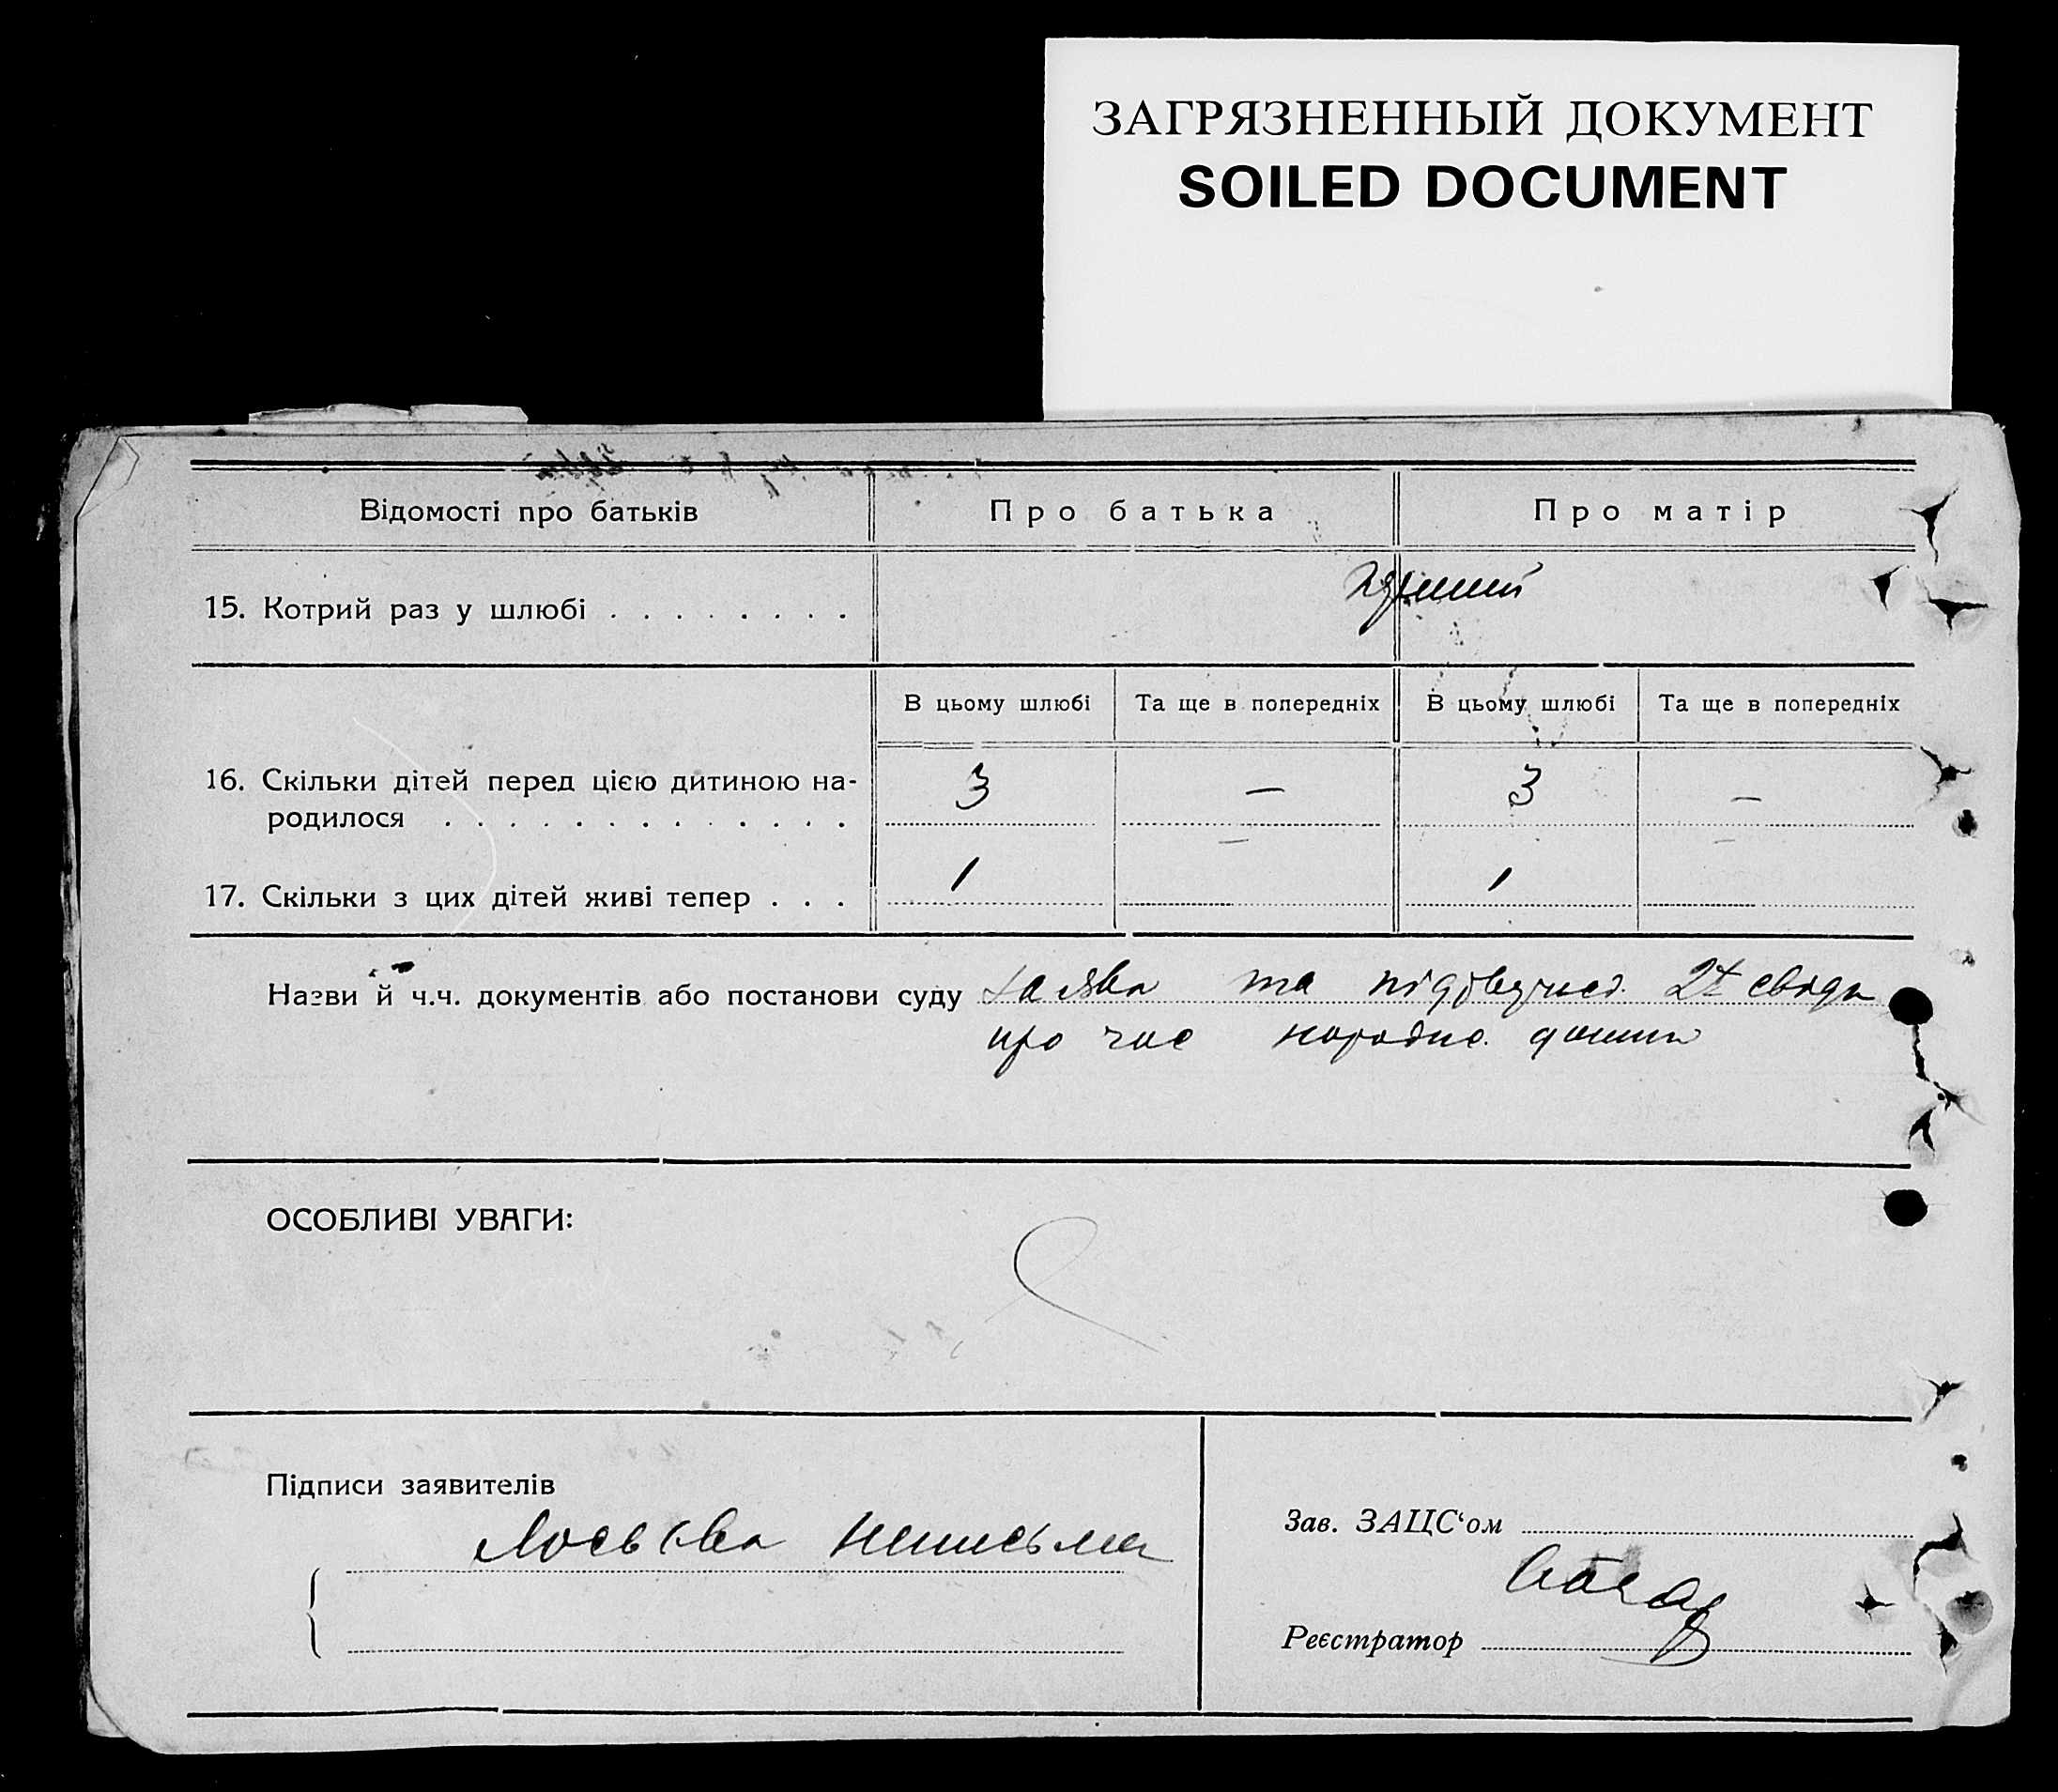 ЗАГРЯЗНЕННЫЙ ДОКУМЕНТ
SOILED DOCUMENT
Відомості про батьків
Про батька
Про матір
15. Котрий раз у шлюбі . . . . . . . .
В цьому шлюбі
Та ще в попередніх
В цьому шлюбі
Та ще в попередніх
16. Скільки дітей перед цією дитиною на-
родилося . . . . . . . . . . . . .
3 — 3 —
17. Скільки з цих дітей живі тепер . . .
1 — 1 —
Назви й ч.ч. документів або постанови суду заява та 2х
про час
ОСОБЛИВІ УВАГИ:
Підписи заявителів
Зав. ЗАЦС‘ом
Реєстратор